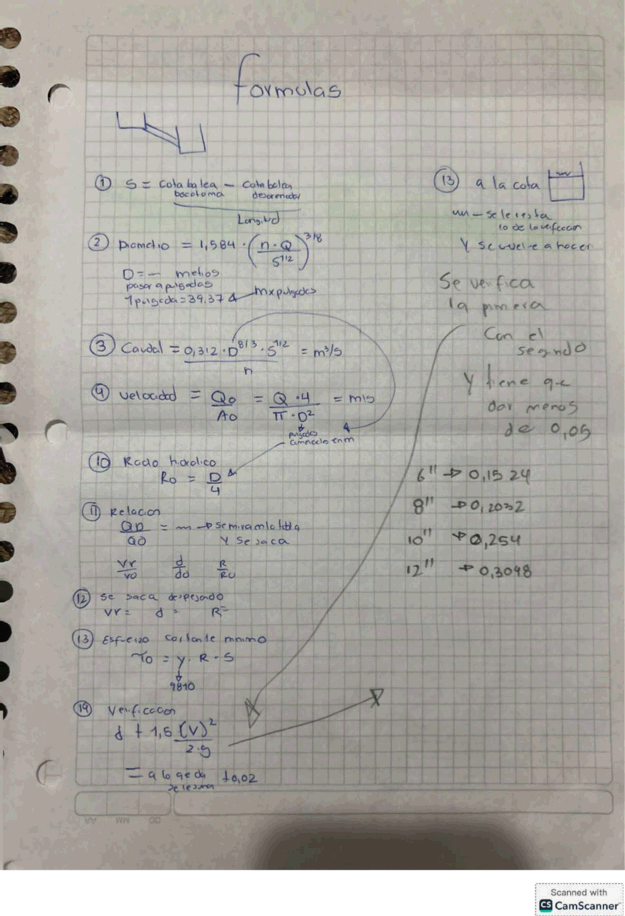 formulas
① S = cota batea - cota batea
bocatoma desarenador
Longitud
② Diametro = 1,584 · (n·Q / S^1/2)^3/8
D = — metros
pasar a pulgadas
1 pulgada = 39,37 mxpulgadas
③ Caudal = 0,312 · D^8/3 · S^1/2 / n = m³/s
④ Velocidad = Qo / Ao = Q · 4 / π · D² = m/s
⑩ Radio hidrolico
Ro = D / 4
⑪ Relacion
QD / QO = m → se mira en la tabla
y se saca
Vr / vo d / do R / Ro
⑫ Se saca despejado
Vr = d = R =
⑬ Esfuerzo cortante minimo
To = y · R · S
9810
⑭ Verificacion
d + 1,5 (V)² / 2·g
= a lo que da +0,02
⑬ a la cota
se le resta
lo de la verificacion
Y se vuelve a hacer
Se verifica
la primera
Con el
segundo
Y tiene que
dar menos
de 0,05
6" → 0,1524
8" → 0,2032
10" → 0,254
12" → 0,3048
Scanned with
CS CamScanner